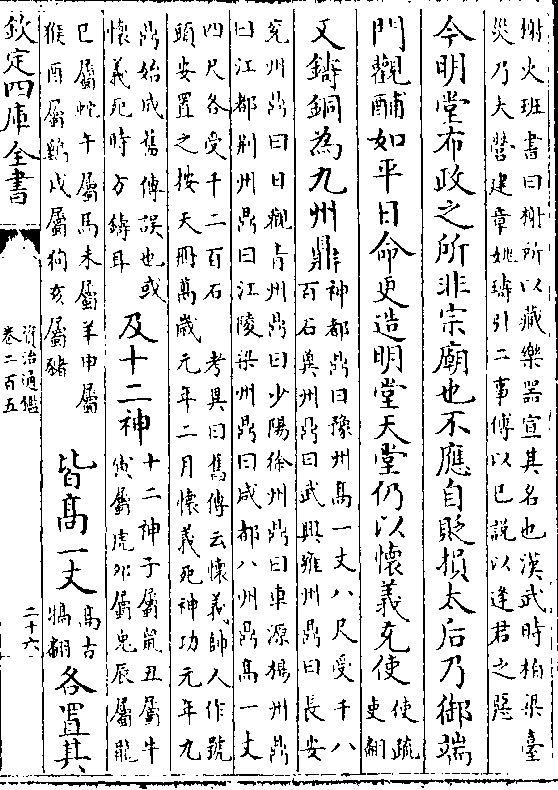 榭火班書曰榭所以藏樂器宣其名也漢武時柏梁臺
災乃大營建章姚璹引二事傅以已説以逢君之惡
今明堂布政之所非宗廟也不應自貶損太后乃御端
門觀酺如平日命更造明堂天堂仍以懷義充使使疏
吏翻
又鑄銅為九州鼎神都鼎曰豫州高一丈八尺受千八
百石冀州鼎曰武興雍州鼎曰長安
兗州鼎曰日觀青州鼎曰少陽徐州鼎曰東源楊州鼎
曰江都荆州鼎曰江陵梁州鼎曰成都八州鼎高一丈
四尺各受千二百石 考異曰舊傳云懷義帥人作號
頭安置之按天冊萬歳元年二月懷義死神功元年九
鼎始成舊傳誤也或
懷義死時方鑄耳
及十二神十二神子屬鼠丑屬牛
寅屬虎卯屬兔辰屬龍
巳屬蛇午屬馬未屬羊申屬
猴酉屬雞戌屬狗亥屬豬
皆高一丈高古
犒翻
各置其
欽定四庫全書
資治通鑑
卷二百五
二十六